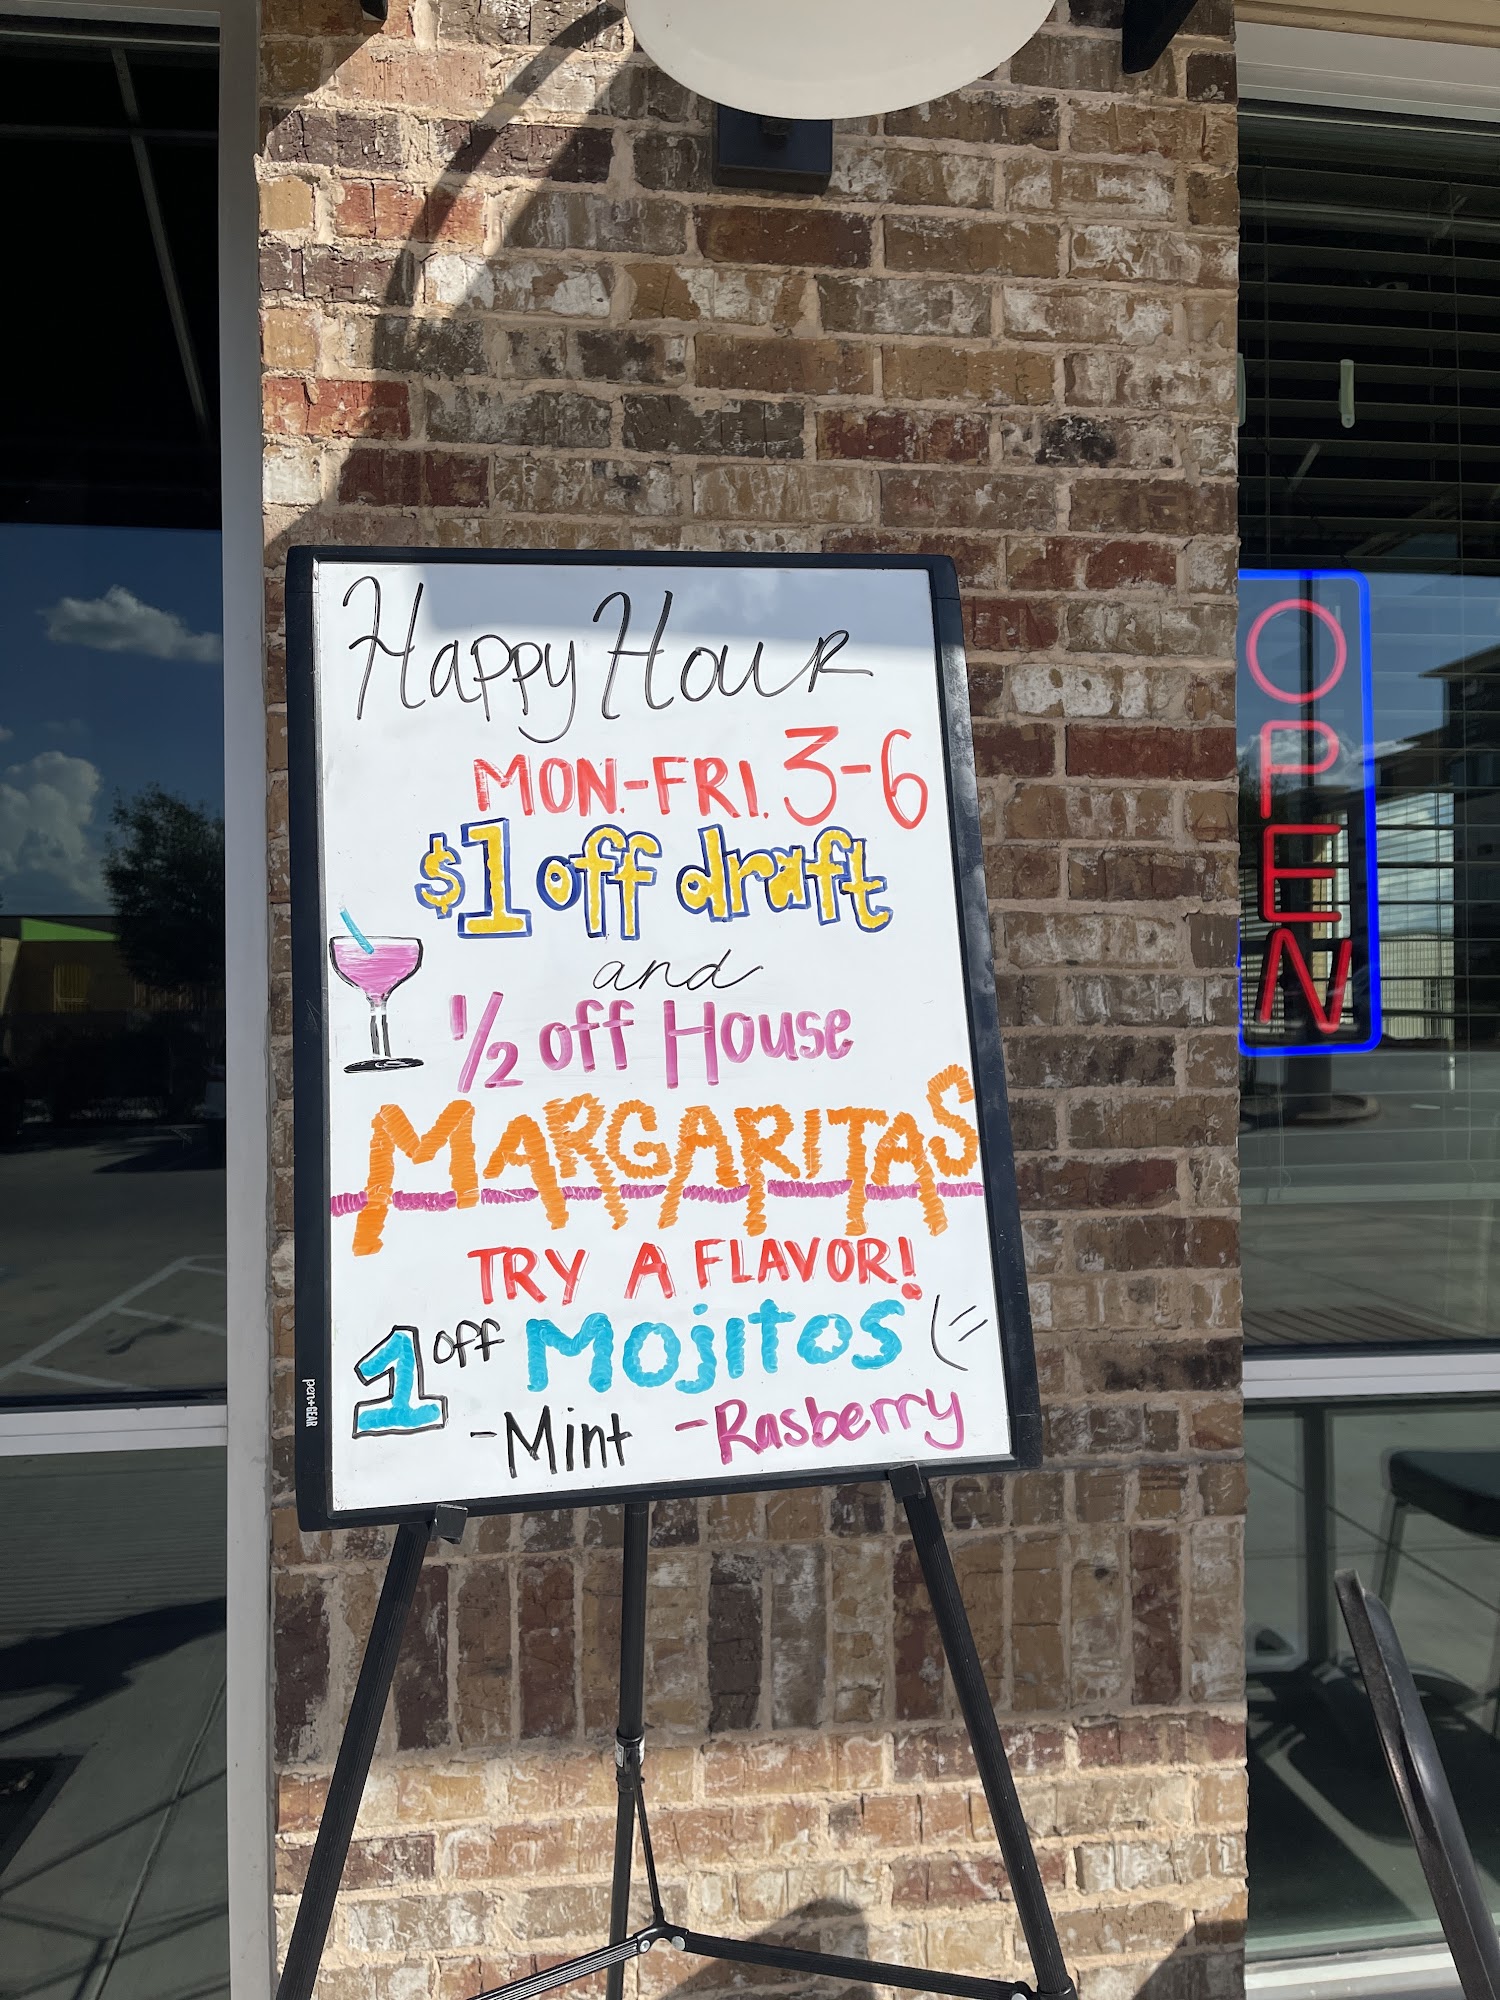 Happy Hour
MON.-FRI. 3-6
$1 off draft
and
1/2 off House
MARGARITAS
TRY A FLAVOR!
1 off Mojitos
-Mint -Rasberry
pen+GEAR
OPEN